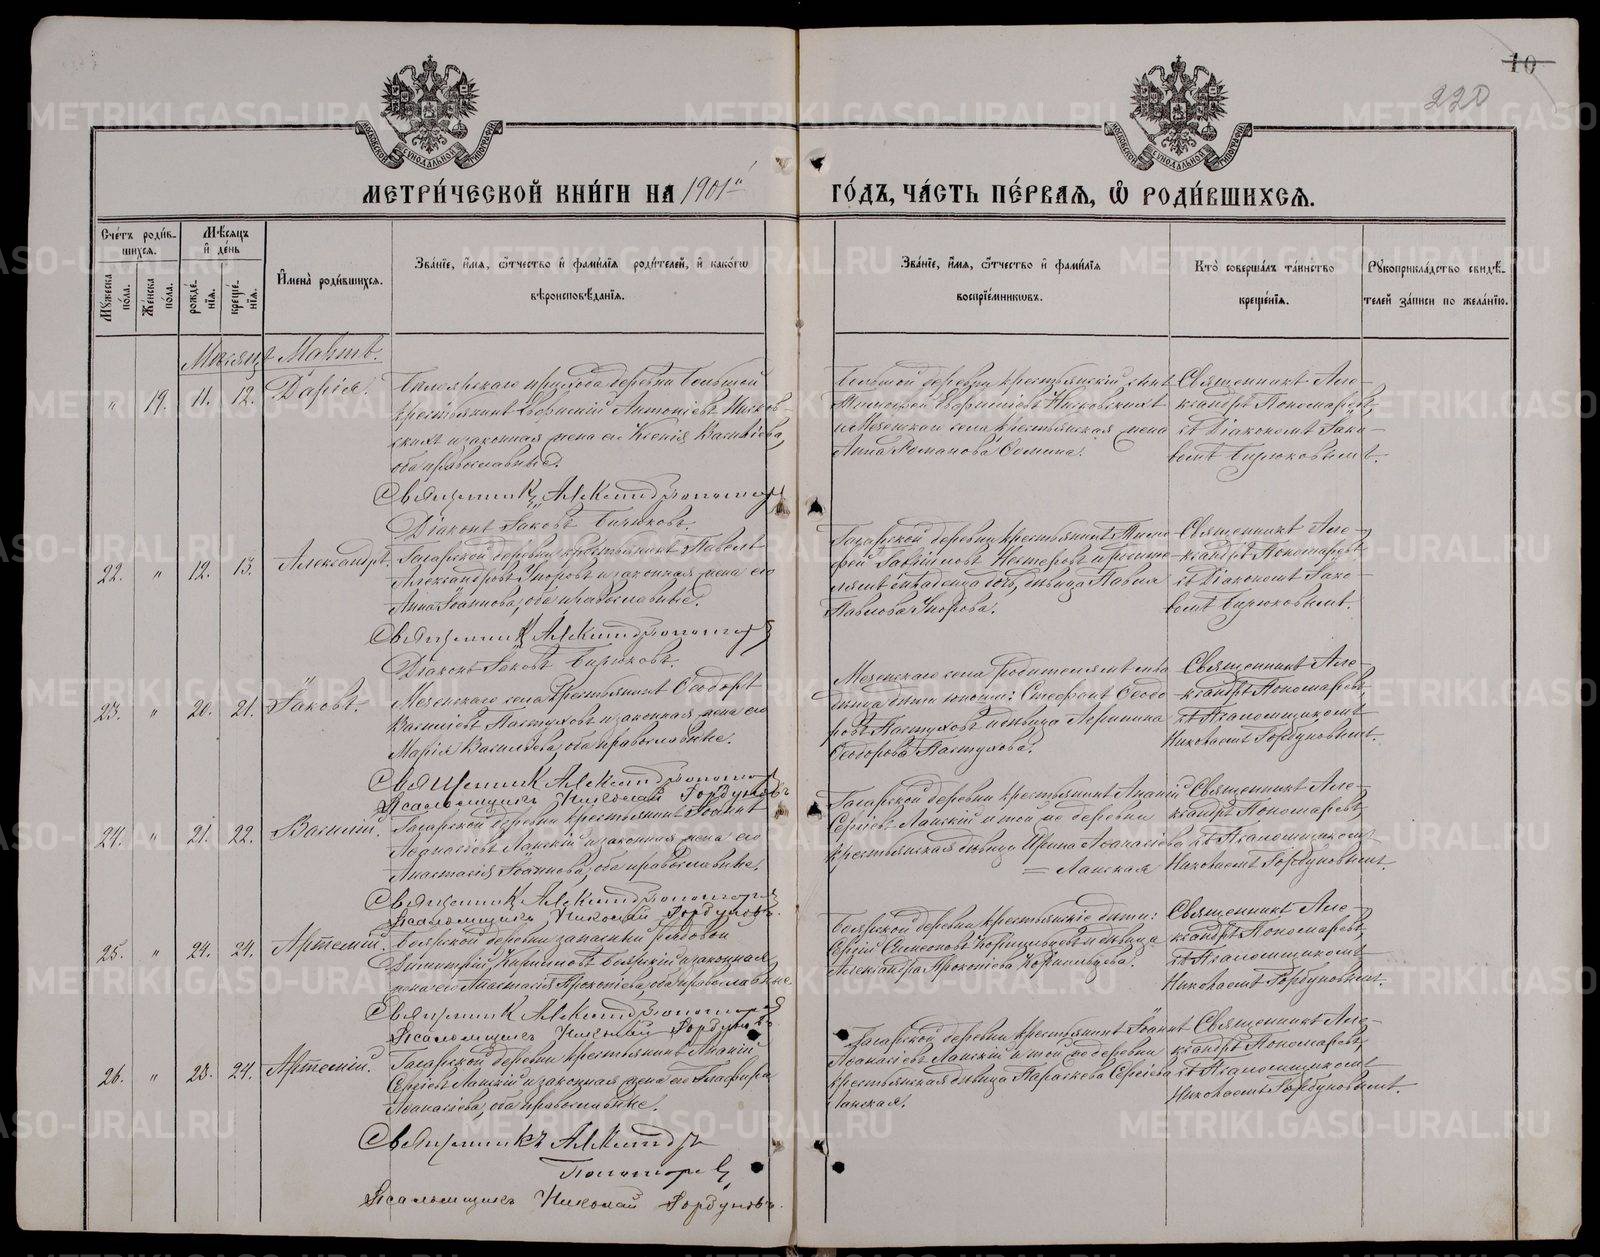 10
220
МОСКОВСКОЙ СѴНОДАЛЬНОЙ ТИПОГРАФІИ
МОСКОВСКОЙ СѴНОДАЛЬНОЙ ТИПОГРАФІИ
МЕТРИ́ЧЕСКОЙ КНИ́ГИ НА 1901й
ГО́ДЪ, ЧА́СТЬ ПЕ́РВАѦ, Ѡ҆ РОДИ́ВШИХСѦ.
Сче́тъ роди́в-
шихсѧ.
Мѹ́жеска по́ла.
Же́нска по́ла.
Мѣ́сѧцъ и҆ де́нь
рожде́нїѧ.
креще́нїѧ.
И҆мена̀ роди́вшихсѧ.
Зва́нїе, и҆́мѧ, ѻ҆́тчество и҆ фами́лїѧ роди́телей, и҆ како́гѡ
вѣроисповѣ́данїѧ.
Зва́нїе, и҆́мѧ, ѻ҆́тчество и҆ фами́лїѧ
воспрїе́мникѡвъ.
Кто̀ соверша́лъ та́инство
креще́нїѧ.
Рѹкоприкла́дство свидѣ́-
телей за́писи по жела́нїю.
Мѣсяцъ Мартъ.
" 19. 11. 12. Дарія.
Белоярскаго прихода деревни Большой
крестьянинъ Евористій Антоніевъ Чисков-
скихъ и законная жена его Ксенія Васильева,
оба православные.
Священникъ Александръ Пономаревъ
Діаконъ Іаковъ Бирюковъ.
Большой деревни крестьянскій сынъ
Тимофей Евористіевъ Чисковскихъ
и Мезенскаго села крестьянская жена
Анна Романова
Священникъ Але-
ксандръ Пономаревъ,
съ Діакономъ Іако-
вомъ Бирюковымъ.
22. " 12. 13. Александръ.
Гагарской деревни крестьянинъ Павелъ
Александровъ Упоровъ и законная жена его
Анна Іоаннова, оба православные.
Священникъ Александръ Пономаревъ
Діаконъ Іаковъ Бирюковъ.
Гагарской деревни крестьянинъ Тимо-
фей Нестеровъ и
дѣвица Павла
Павлова Упорова.
Священникъ Але-
ксандръ Пономаревъ
съ Діакономъ Іако-
вомъ Бирюковымъ.
23. " 20. 21. Іаковъ.
Мезенскаго села крестьянинъ Ѳеодоръ
Васильевъ Пастуховъ и законная жена его
Марія Васильева, оба православные.
Священникъ Александръ Пономаревъ
Псаломщикъ Николай Горбуновъ
Мезенскаго села
дѣти юноша: Стефанъ Ѳеодо-
ровъ Пастуховъ и дѣвица
Ѳеодорова Пастухова.
Священникъ Але-
ксандръ Пономаревъ,
съ Псаломщикомъ
Николаемъ Горбуновымъ.
24. " 21. 22. Василій.
Гагарской деревни крестьянинъ Іоаннъ
Аѳанасіевъ Ланскій и законная жена его
Анастасія Іоаннова, оба православные.
Священникъ Александръ Пономаревъ
Псаломщикъ Николай Горбуновъ.
Гагарской деревни крестьянинъ Ананій
Сергіевъ Ланскій и той же деревни
крестьянская дѣвица Ирина Аѳанасіева
Ланская
Священникъ Але-
ксандръ Пономаревъ,
съ Псаломщикомъ
Николаемъ Горбуновымъ.
25. " 24. 24. Артемій.
Боярской деревни запасный рядовой
Димитрій Боярскій и законная
жена его Анастасія Прокопіева, оба православные
Священникъ Александръ Пономаревъ
Псаломщикъ Николай Горбуновъ
Боярской деревни крестьянскіе дѣти:
Сергій Симеоновъ и дѣвица
Александра Прокопіева
Священникъ Але-
ксандръ Пономаревъ,
съ Псаломщикомъ
Николаемъ Горбуновымъ.
26. " 23. 24. Артемій.
Гагарской деревни крестьянинъ Ананій
Сергіевъ Ланскій и законная жена его Глафира
Аѳанасіева, оба православные.
Священникъ Александръ
Пономаревъ
Псаломщикъ Николай Горбуновъ.
Гагарской деревни крестьянинъ Іоаннъ
Аѳанасіевъ Ланскій и той же деревни
крестьянская дѣвица Параскева Сергіева
Ланская.
Священникъ Але-
ксандръ Пономаревъ,
съ Псаломщикомъ
Николаемъ Горбуновымъ.
METRIKI.GASO-URAL.RU